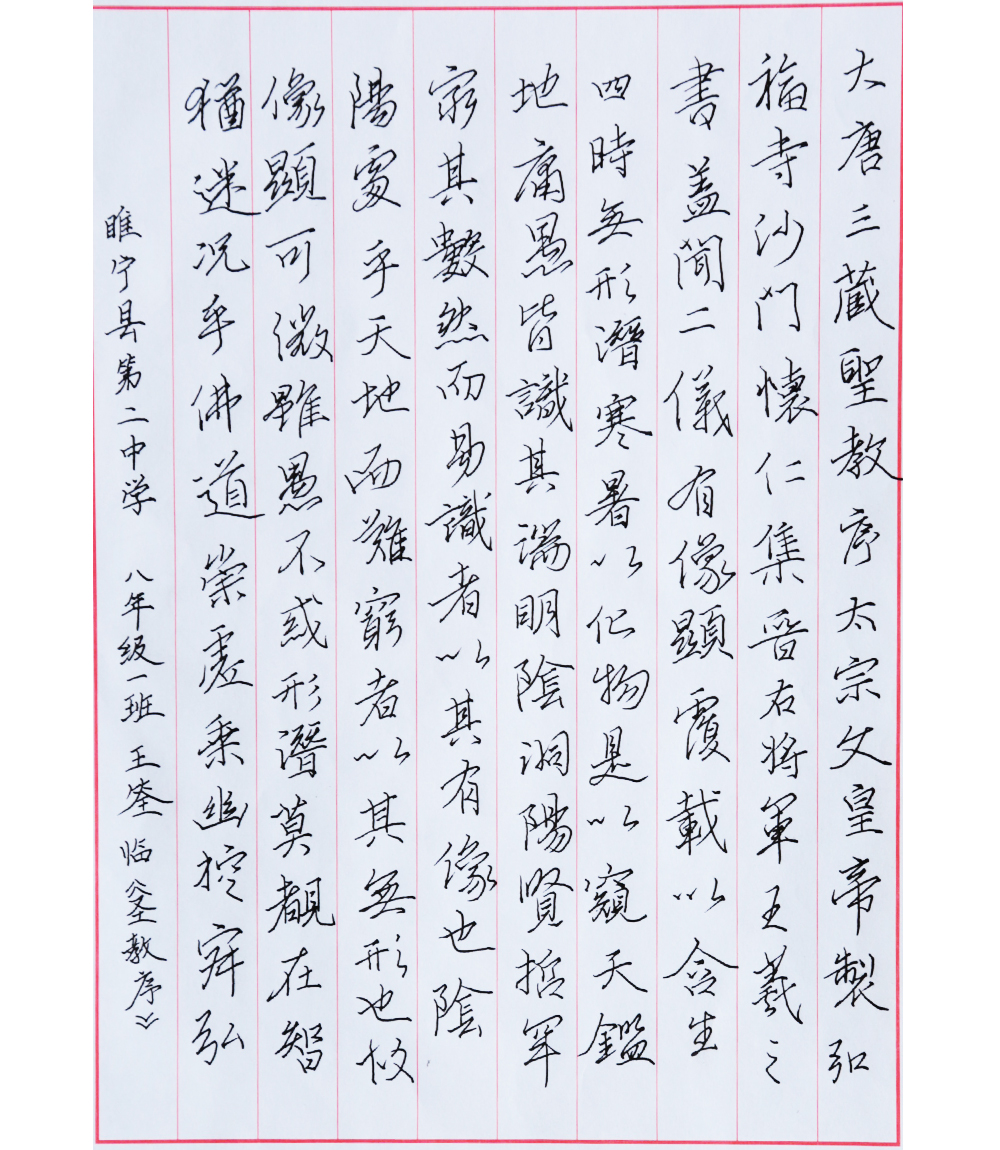 大唐三藏聖教序太宗文皇帝製弘
福寺沙門懷仁集晉右將軍王羲之
書蓋聞二儀有像顯覆載以含生
四時無形潛寒暑以化物是以窺天鑑
地庸愚皆識其端明陰洞陽賢哲罕
窮其數然而易識者以其有像也陰
陽處乎天地而難窮者以其無形也故
像顯可徵雖愚不惑形潛莫覩在智
猶迷況乎佛道崇虛乘幽控寂弘
睢宁县第二中学 八年级一班 王 临《圣教序》